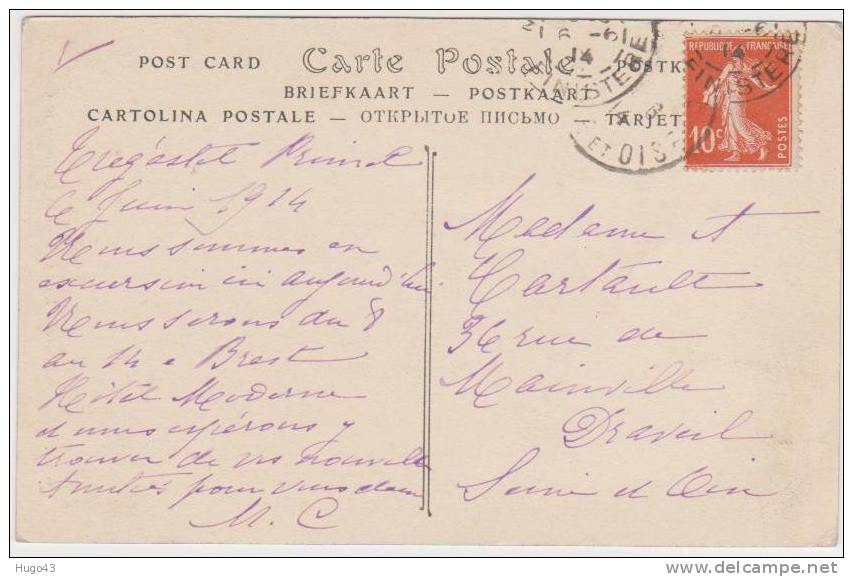 POST CARD Carte Postale POSTK
BRIEFKAART — POSTKAART
CARTOLINA POSTALE — ОТКРЫТОЕ ПИСЬМО — TARJET
REPUBLIQUE FRANÇAISE
10c
POSTES
FINISTERE
FINISTERE
ET OISE
Trégastel Primel
le Juin 1914
Nous sommes en
excursion ici aujourd'hui
Nous serons du 8
au 14 a Brest
Hôtel Moderne
et nous espérons y
trouver de vos nouvelles
Amitiés pour vous deux
M. C
Madame A
Cartault
36 rue de
Mainville
Draveil
Seine et Oise
Hugo43